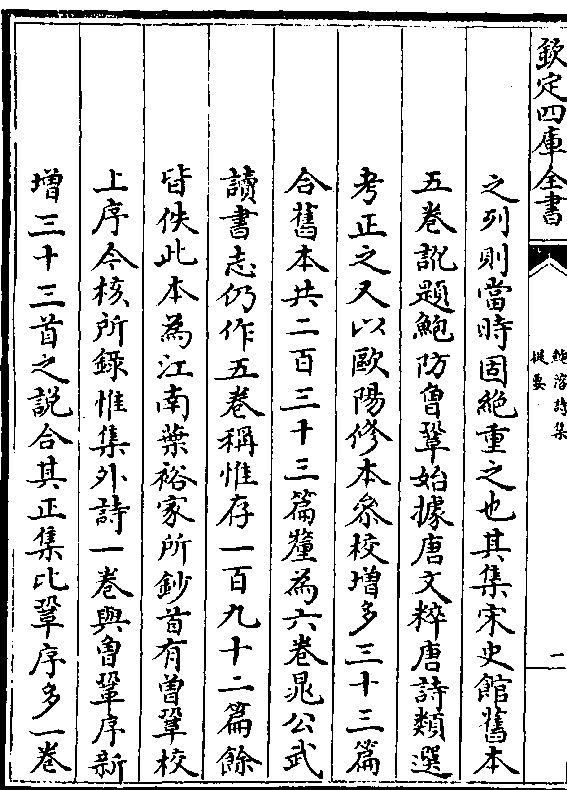 欽定四庫全書
鮑溶詩集
提要
一
之列則當時固絶重之也其集宋史館舊本
五卷訛題鮑防曾鞏始據唐文粹唐詩類選
考正之又以歐陽修本叅校增多三十三篇
合舊本共二百三十三篇釐為六卷晁公武
讀書志仍作五卷稱惟存一百九十二篇餘
皆佚此本為江南葉裕家所鈔首有曾鞏校
上序今核所錄惟集外詩一卷與曾鞏序新
增三十三首之説合其正集比鞏序多一卷